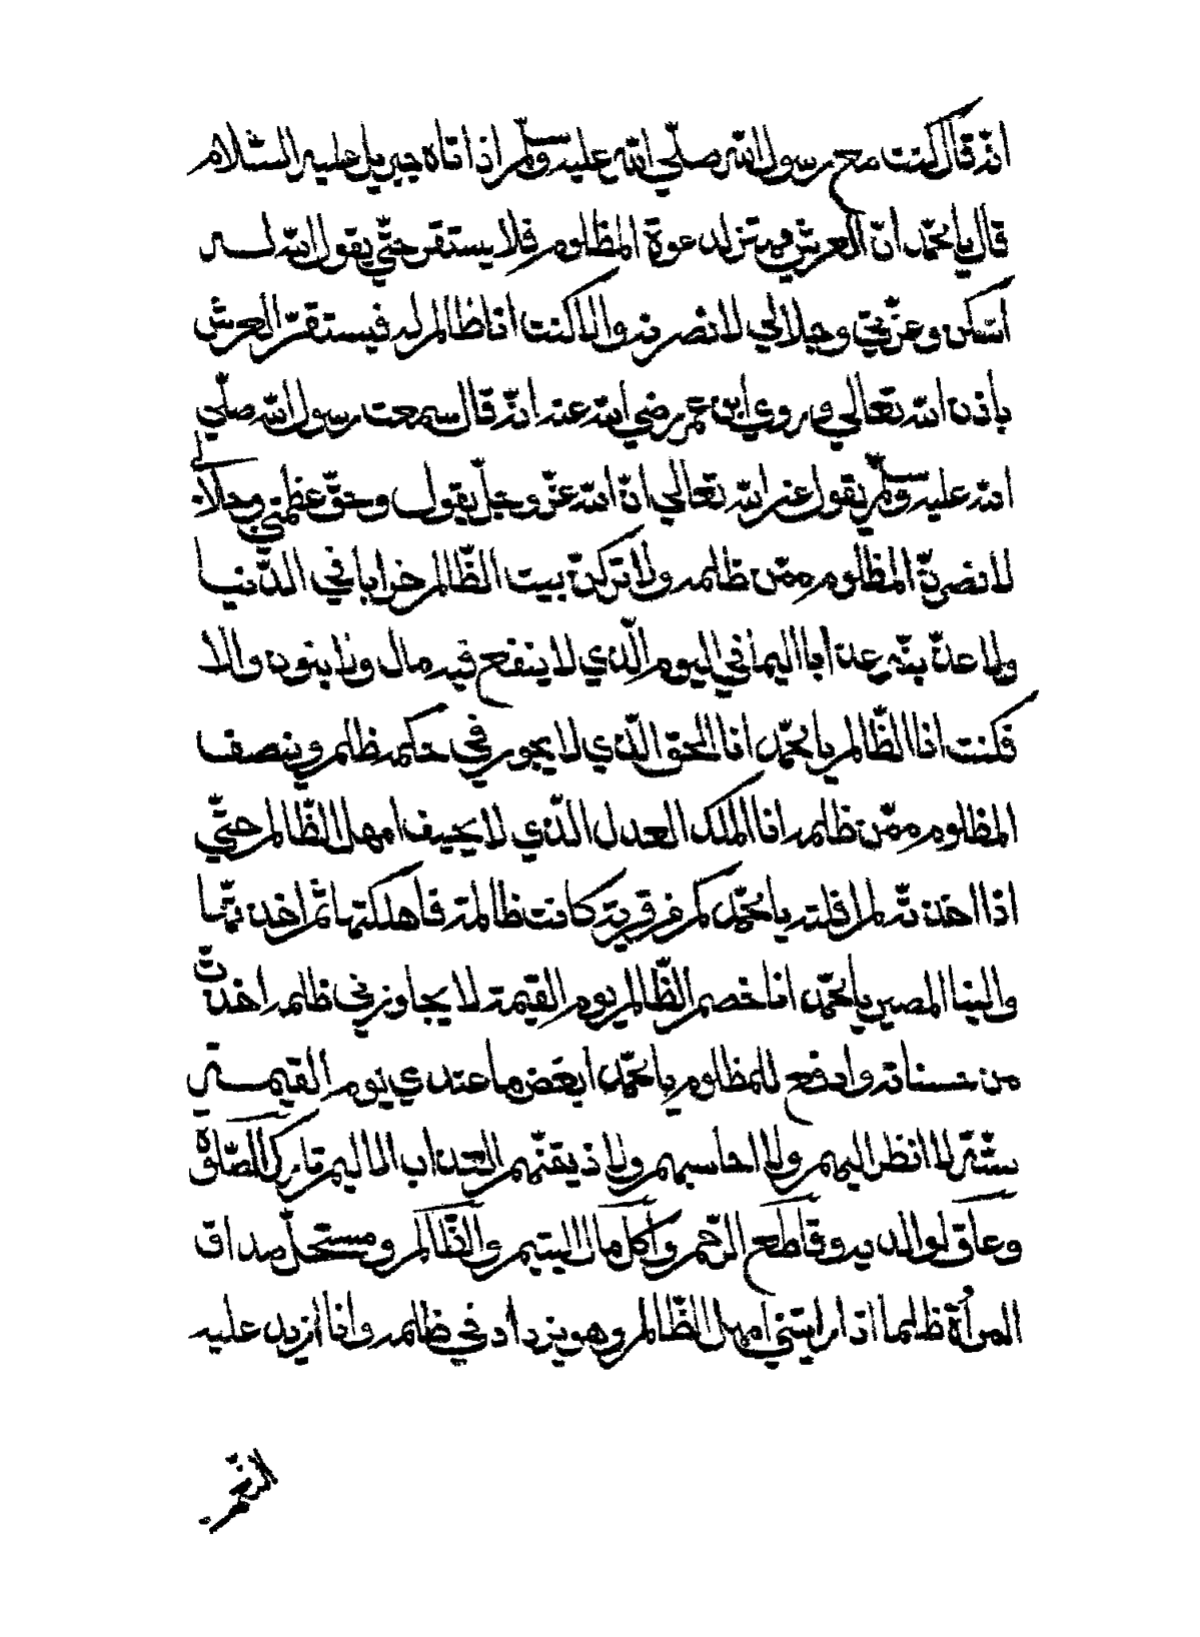 انه قال كنت مع رسول الله صلّي الله عليه وسلّم اذا تاه جبريل عليه السّلام
قال يا محمّد انّ العرش يهتز لدعوة المظلوم فلا يستقر حتّي يقول الله لـه
اسكن وعزّتي وجلالي لانصرنه والا كنت انا ظالم له فيستقرّ العرش
باذن الله تعالي وروي ابن عمر رضي الله عنه انّه قال سمعت رسول الله صلّي
الله عليه وسلّم يقول عن الله تعالي انّ الله عزّ وجلّ يقول وحقّ عظمتي وجلالي
لانصرنّ المظلوم ممّن ظلمه ولا تركنّ بيت الظّالم خرابا في الدّنيا
ولا عذّبنّه عذابا اليما في اليوم الّذي لا ينفع فيه مال ولا بنون والا
فكنت انا الظّالم يا محمّد انا الحق الّذي لا يجور في حكمه ظلم وينصف
المظلوم ممّن ظلمه انا الملك العدل الّذي لا يحيف امهل الظّالم حتّي
اذا اخذته لم افلته يا محمّد كم من قرية كانت ظالمة فاهلكتها ثم اخذتها
والينا المصير يا محمّد انا خصم الظّالم يوم القيمة لا يجاوزني ظلمه اخذتّ
من حسناته وادفع للمظلوم يا محمّد ابغض ما عندي يوم القيمـة
ستّة لا انظر اليهم ولا احاسبهم ولا ذيقنّهم العذاب الاليم تارك الصّلوة
وعاق لوالديه وقاطع الرّحم وآكل مال اليتيم والظّالم ومستحلّ صداق
المرأة ظلما اذا رايتني امهل الظّالم وهو يزداد في ظلمه وانا ازيد عليه